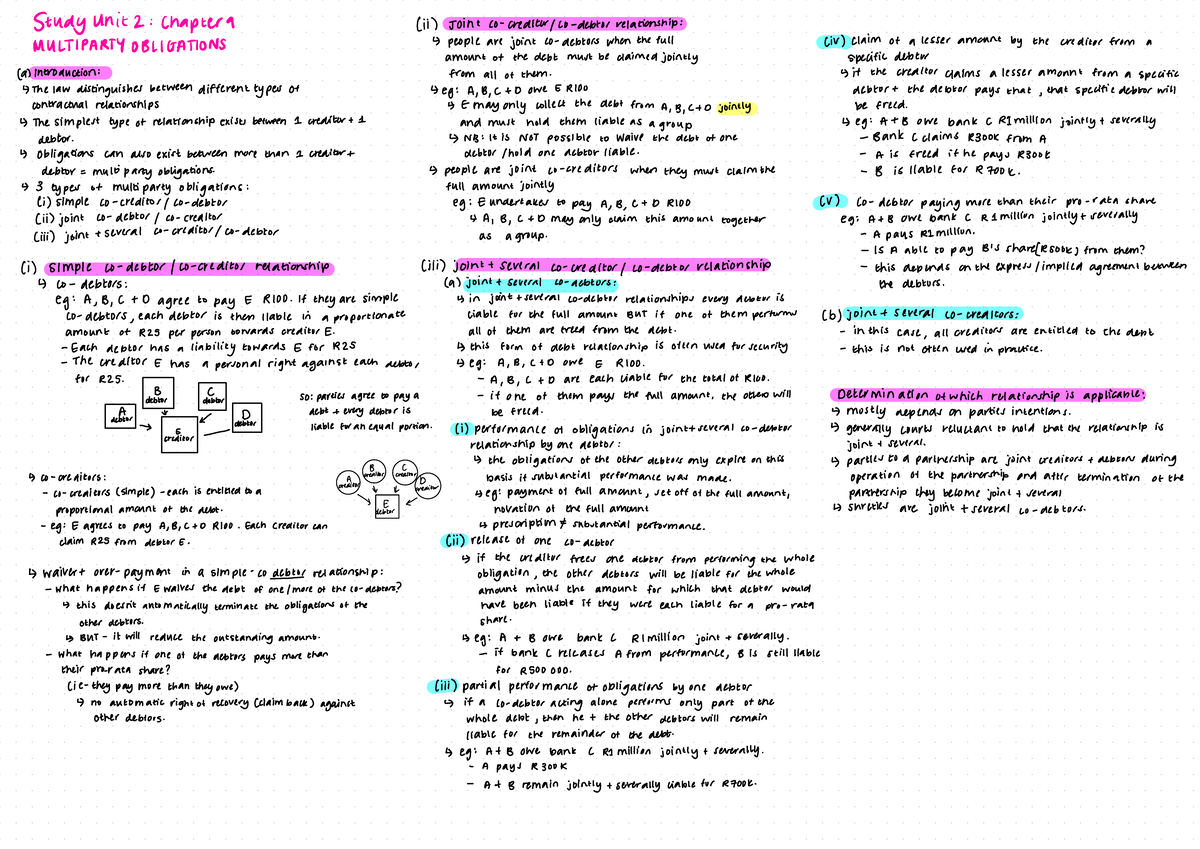 Study Unit 2: Chapter 9
MULTIPARTY OBLIGATIONS
(a) Introduction:
↳ The law distinguishes between different types of
contractual relationships
↳ The simplest type of relationship exists between 1 creditor + 1
debtor.
↳ Obligations can also exist between more than 1 creditor +
debtor = multi party obligations.
↳ 3 types of multi party obligations:
(i) simple co-creditor / co-debtor
(ii) joint co-debtor / co-creditor
(iii) joint + several co-creditor / co-debtor
(i) simple co-debtor / co-creditor relationship
↳ co-debtors:
eg: A, B, C + D agree to pay E R100. If they are simple
co-debtors, each debtor is then liable in a proportionate
amount of R25 per person towards creditor E.
- Each debtor has a liability towards E for R25
- The creditor E has a personal right against each debtor,
for R25.
A
debtor
B
debtor
C
debtor
D
debtor
E
creditor
SO: parties agree to pay a
debt + every debtor is
liable for an equal portion.
↳ co-creditors:
- co-creditors (simple) - each is entitled to a
proportional amount of the debt.
- eg: E agrees to pay A, B, C + D R100. Each creditor can
claim R25 from debtor E.
A
creditor
B
creditor
C
creditor
D
creditor
E
debtor
↳ waiver + over-payment in a simple-co debtor relationship:
- What happens if E waives the debt of one/more of the co-debtors?
↳ this doesn't automatically terminate the obligations of the
other debtors.
↳ BUT - it will reduce the outstanding amount.
- What happens if one of the debtors pays more than
their pro rata share?
(ie - they pay more than they owe)
↳ no automatic right of recovery (claim back) against
other debtors.
(ii) Joint co-creditor / co-debtor relationship:
↳ people are joint co-debtors when the full
amount of the debt must be claimed jointly
from all of them.
↳ eg: A, B, C + D owe E R100
↳ E may only collect the debt from A, B, C + D jointly
and must hold them liable as a group
↳ NB: It is NOT possible to waive the debt of one
debtor / hold one debtor liable.
↳ people are joint co-creditors when they must claim the
full amount jointly
eg: E undertakes to pay A, B, C + D R100
↳ A, B, C + D may only claim this amount together
as a group.
(iii) joint + several co-creditor / co-debtor relationship
(a) joint + several co-debtors:
↳ in joint + several co-debtor relationships every debtor is
liable for the full amount BUT if one of them performs
all of them are freed from the debt.
↳ this form of debt relationship is often used for security
↳ eg: A, B, C + D owe E R100.
- A, B, C + D are each liable for the total of R100.
- if one of them pays the full amount, the others will
be freed.
(i) performance of obligations in joint + several co-debtor
relationship by one debtor:
↳ the obligations of the other debtors only expire on this
basis if substantial performance was made.
↳ eg: payment of full amount, set off of the full amount,
novation of the full amount
↳ prescription ≠ substantial performance.
(ii) release of one co-debtor
↳ if the creditor frees one debtor from performing the whole
obligation, the other debtors will be liable for the whole
amount minus the amount for which that debtor would
have been liable if they were each liable for a pro-rata
share.
↳ eg: A + B owe bank C R1 million joint + severally.
- if bank C releases A from performance, B is still liable
for R500 000.
(iii) partial performance of obligations by one debtor
↳ if a co-debtor acting alone performs only part of the
whole debt, then he + the other debtors will remain
liable for the remainder of the debt.
↳ eg: A + B owe bank C R1 million jointly + severally.
- A pays R300K
- A + B remain jointly + severally liable for R700K.
(iv) claim of a lesser amount by the creditor from a
specific debtor
↳ if the creditor claims a lesser amount from a specific
debtor + the debtor pays that, that specific debtor will
be freed.
↳ eg: A + B owe bank C R1 million jointly + severally
- Bank C claims R300K from A
- A is freed if he pays R300K
- B is liable for R700K.
(v) Co-debtor paying more than their pro-rata share
eg: A + B owe bank C R1 million jointly + severally
- A pays R1 million.
- Is A able to pay B's share [R500K] from them?
- this depends on the express/implied agreement between
the debtors.
(b) joint + several co-creditors:
- in this case, all creditors are entitled to the debt
- this is not often used in practice.
Determination of which relationship is applicable:
↳ mostly depends on parties intentions.
↳ generally courts reluctant to hold that the relationship is
joint + several.
↳ parties to a partnership are joint creditors + debtors during
operation of the partnership and after termination of the
partnership they become joint + several
↳ sureties are joint + several co-debtors.